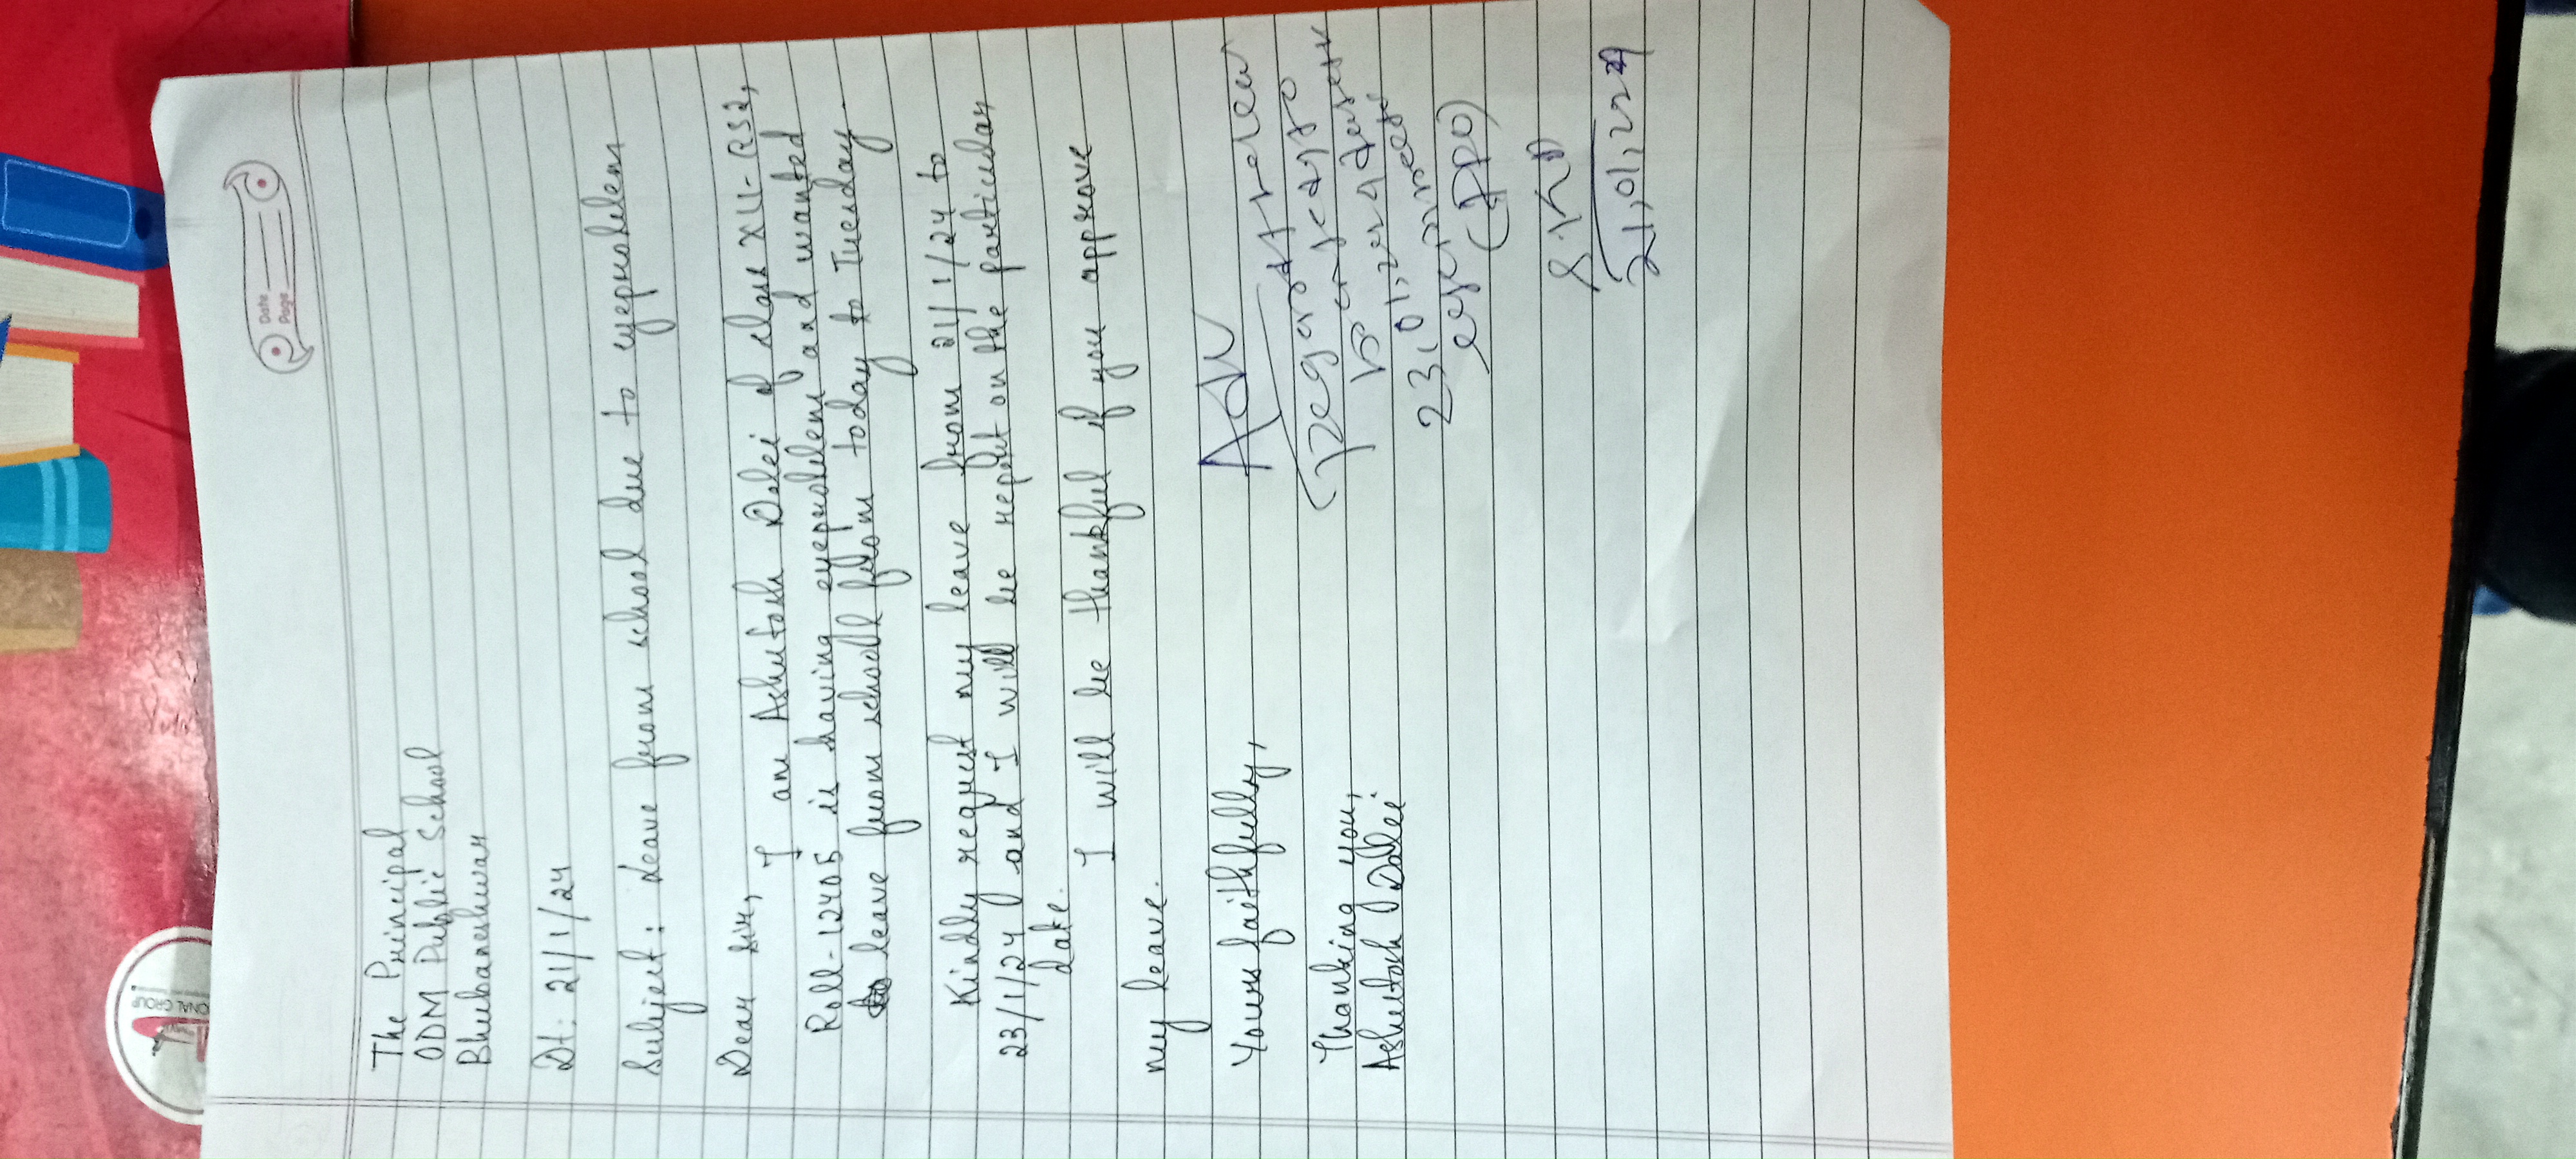 Date
Page
The Principal
ODM Public School
Bhubaneshwar
Dt: 21/1/24
Subject: Leave from school due to eyeproblem
Dear Sir,
I am Ashutosh Dalei of class XII-CS2,
Roll-12405 is having eyeproblem and wanted
leave from school from today to Tuesday.
Kindly request my leave from 21/1/24 to
23/1/24 and I will be report on the particular
date.
I will be thankful if you approve
my leave.
Yours faithfully,
Thanking you,
Ashutosh Dalei
23.01.
21.01.2024
ONAL GROUP